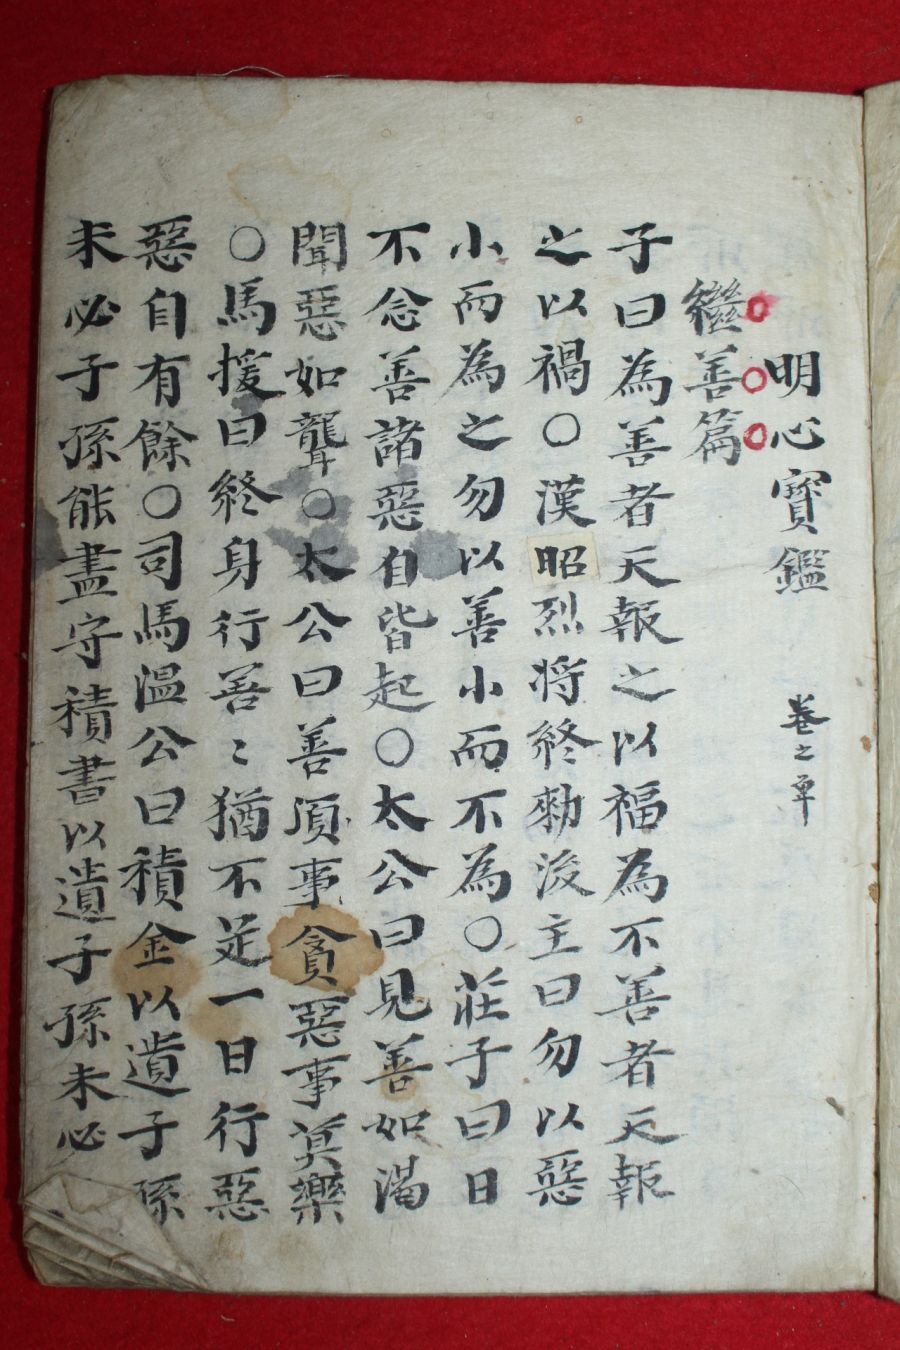 明心寶鑑 卷之單
繼善篇
子曰為善者天報之以福為不善者天報
之以禍○漢昭烈将終勑後主曰勿以惡
小而為之勿以善小而不為○莊子曰日
不念善諸惡自皆起○太公曰見善如渴
聞惡如聾○太公曰善湏事貪惡事莫樂
○馬援曰終身行善〻猶不足一日行惡
惡自有餘○司馬温公曰積金以遺子孫
未必子孫能盡守積書以遺子孫未必